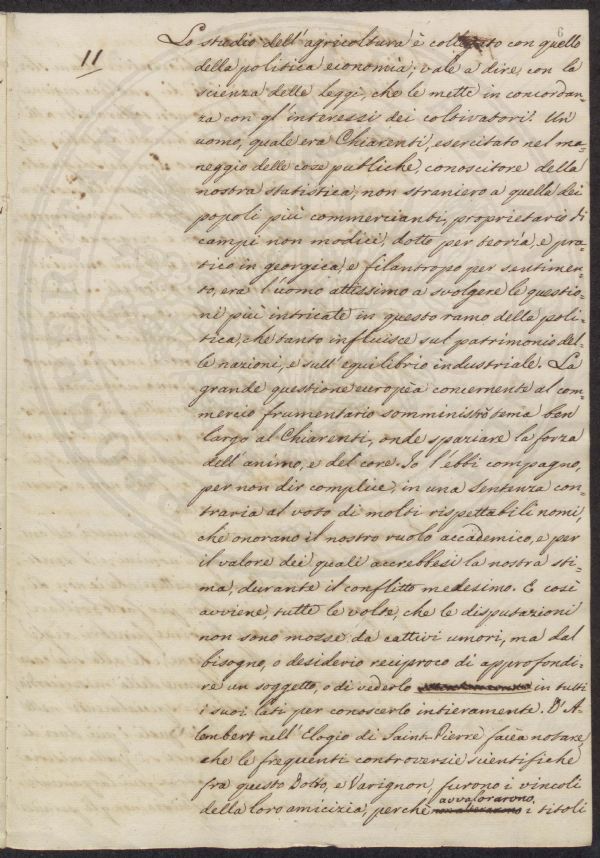 6
11
Lo studio dell'agricoltura è collegato con quello
della politica economia; vale a dire, con la
scienza delle Leggi, che le mette in concordan=
za con gl'interessi dei coltivatori. Un'
uomo, quale era Chiarenti, esercitato nel ma=
neggio delle cose publiche, conoscitore della
nostra statistica, non straniero a quella dei
popoli più commercianti, proprietario di
campi non modici, dotto per teorìa, e pra=
tico in georgica, e filantropo per sentimen=
to, era l'uomo attissimo a svolgere le questio=
ni più intricate in questo ramo della poli=
tica, che tanto influisce sul patrimonio del=
le nazioni, e sull'equilibrio industriale. La
grande questione europèa concernente al com=
mercio frumentario somministrò tema ben
largo al Chiarenti, onde spaziare la forza
dell'animo, e del core. Io l'ebbi compagno,
per non dir complice, in una sentenza con=
traria al voto di molti rispettabili nomi,
che onorano il nostro ruolo accademico, e per
il valore dei quali accrebbesi la nostra sti=
ma, durante il conflitto medesimo. E così
avviene, tutte le volte, che le disputazioni
non sono mosse da cattivi umori, ma dal
bisogno, o desiderio reciproco di approfondi=
re un soggetto, o di vederlo in tutti
i suoi lati per conoscerlo intieramente. D'A=
lembert nell'Elogio di Saint-Pierre facea notare,
che le frequenti controversie scientifiche
fra questo Dotto, e Varignon, furono i vincoli
della loro amicizia, perchè avvalorarono i titoli